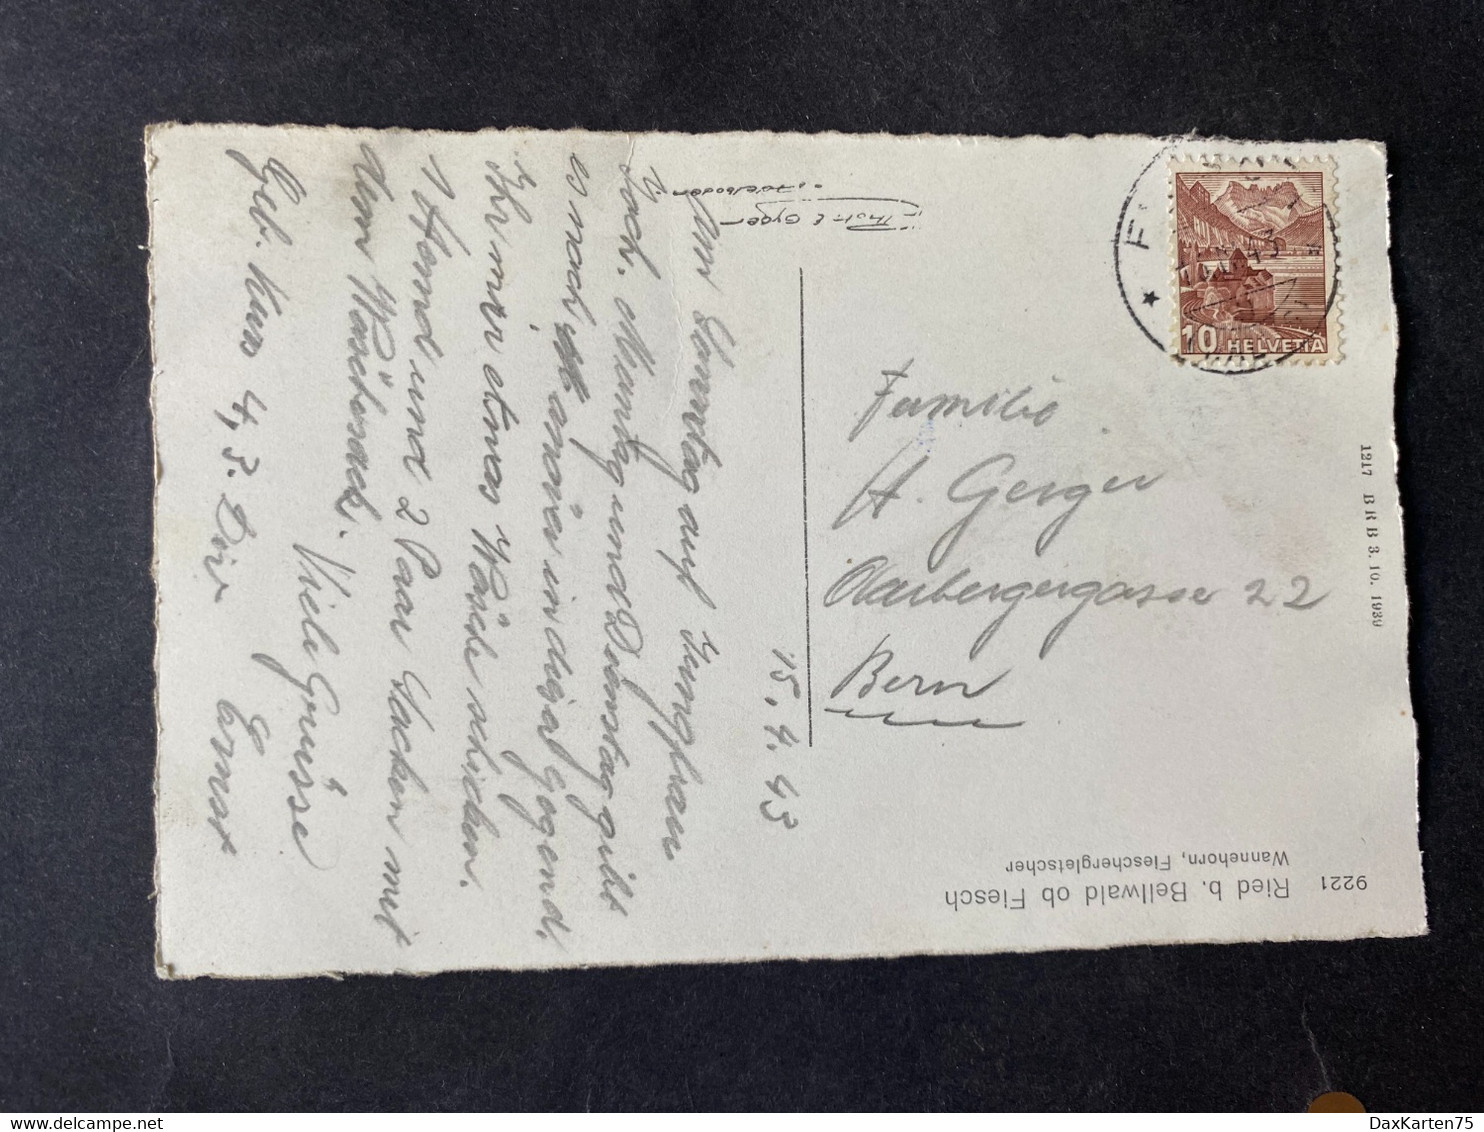 15. 4. 43
Am Samstag auf Jungfrau
Joch. Montag und Dienstag gibt
es noch andere in dieser Gegend.
Ihr mir etwas Wäsche schicken.
1 Hemd und 2 Paar Socken mit
dem Wäschesack.
Viele Grüsse
Ernst
Geb. Kurs 4, 3. Div
Phot. E. Gyger
Adelboden
HELVETIA
10
Familie
H. Geiger
Aarbergergasse 22
Bern
1217 BRB 3. 10. 1939
9221
Ried b. Bellwald ob Fiesch
Wannehorn, Fieschergletscher
DaxKarten75